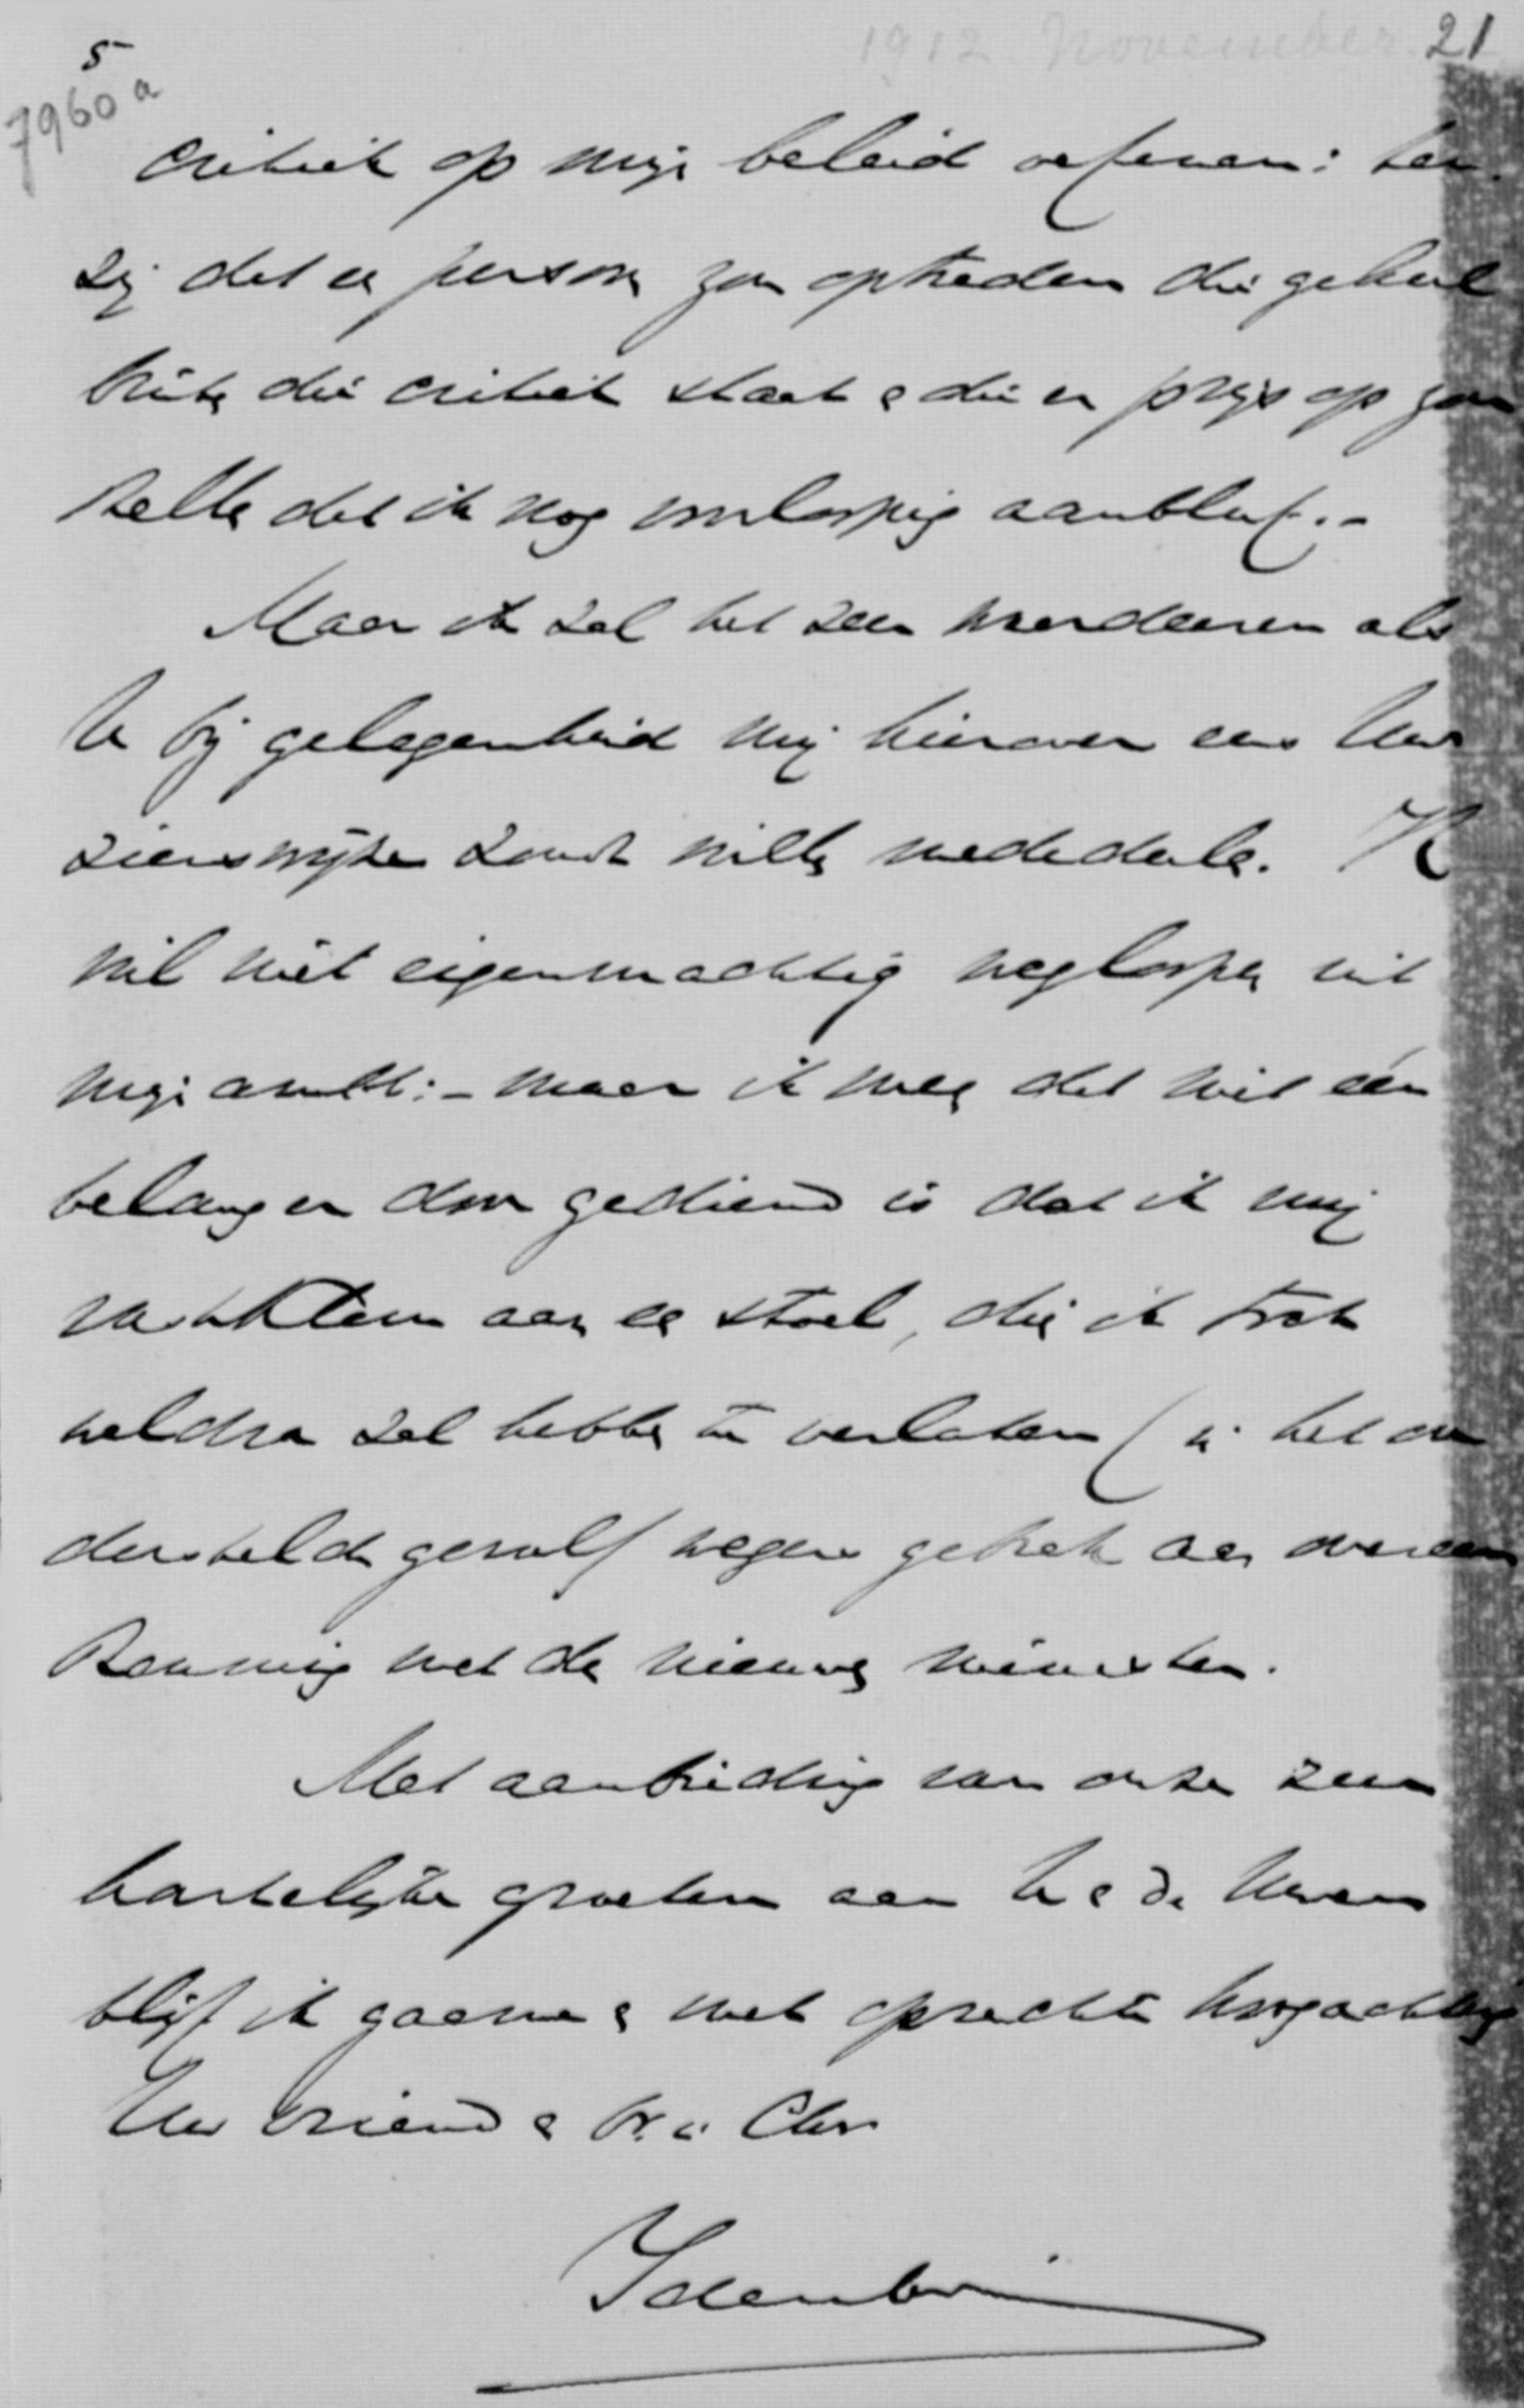 1912. November. 21
5
7960 a
critiek op mijn beleid oefenen: ten
zij dat een persoon zou optreden die geheel
buiten die critiek staat en die er prijs op zou
stellen dat ik nog voorloopig aanbleef. -
Maar ik zal het zeer waardeeren als
U bij gelegenheid mij hierover eens Uw
zienswijze zoudt willen mededeelen. Ik
wil niet eigenmachtig wegloopen uit
mijn ambt: - maar ik meen dat niet één
belang er door gediend is dat ik mij
vastklem aan een stoel, die ik toch
weldra zal hebben te verlaten (in het on
dersteld geval) wegens gebrek aan overeen
stemming met de nieuwe minister.
Met aanbieding van onze zeer
hartelijke groeten aan U en de Uwen
blijf ik gaarne en met oprechte hoogachting
Uw vriend en br. in Chr.
Idenburg